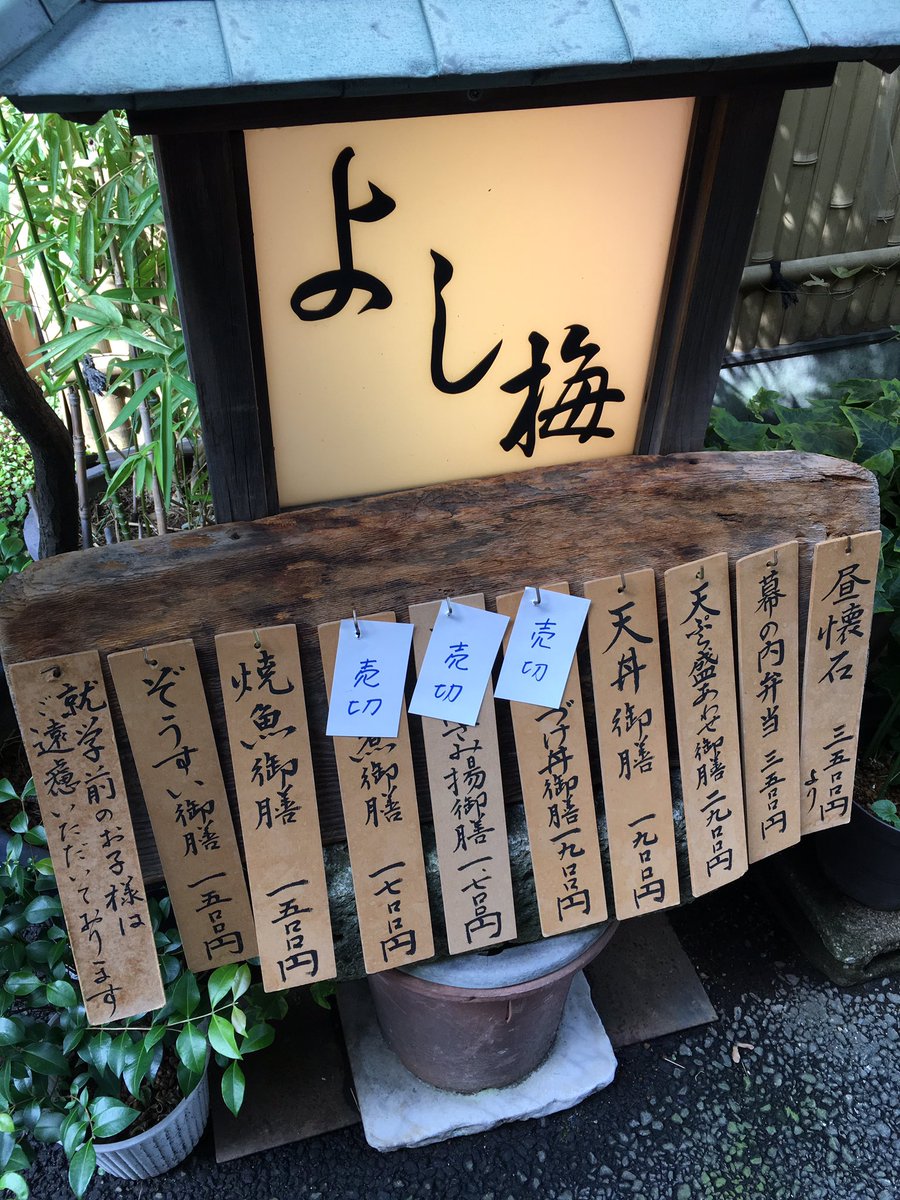 よし梅
昼懐石 三五〇〇円より
幕の内弁当 三五〇〇円
天ぷら盛あわせ御膳 二九〇〇円
天丼御膳 一九〇〇円
売切
づけ丼御膳 一九〇〇円
売切
さみ揚御膳 一、七〇〇円
売切
煮御膳 一七〇〇円
焼魚御膳 一五〇〇円
ぞうすい御膳 一五〇〇円
就学前のお子様は
ご遠慮いただいております